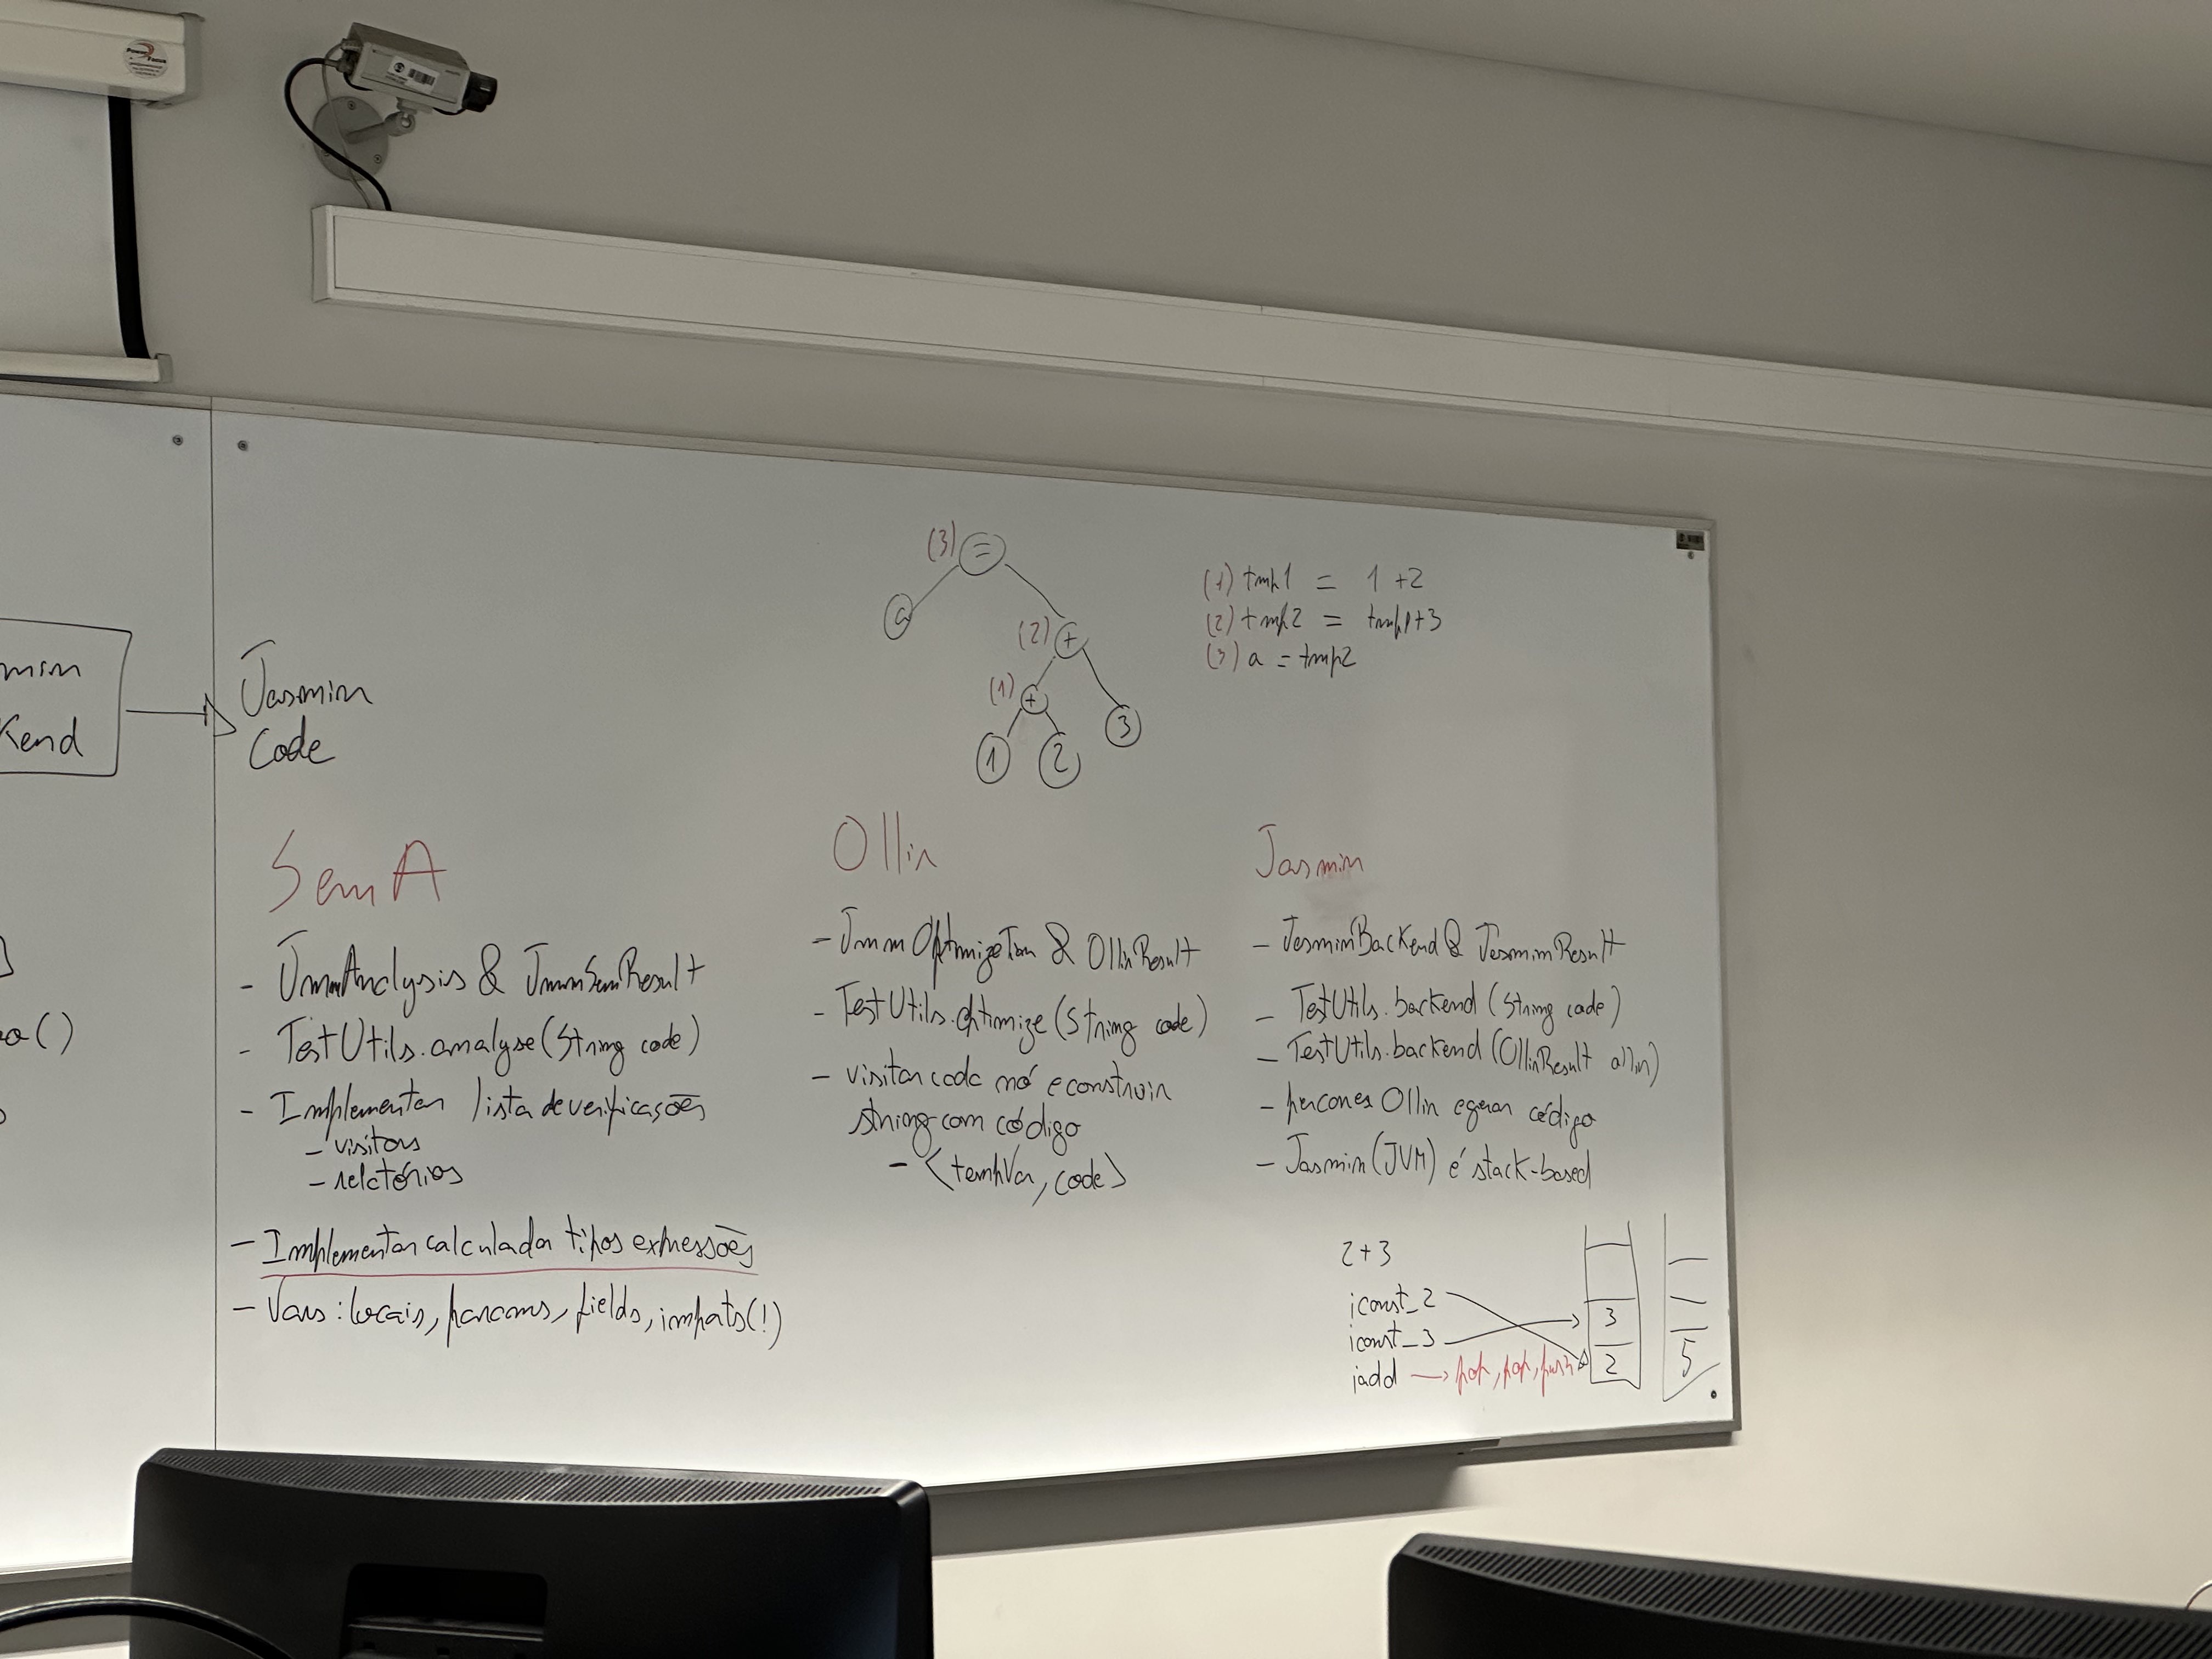 Power
Focus
(3) =
a
(2) +
(1) +
1 2 3
(1) tmp1 = 1 + 2
(2) tmp2 = tmp1 + 3
(3) a = tmp2
Kend
Jasmin
Code
SemA
- JmmAnalysis & JmmSemResult
- TestUtils.analyse(String code)
- Implementar lista de verificações
- visitors
- relatórios
- Implementar calculador tipos expressões
- Vars: locais, params, fields, imports(!)
Ollir
- JmmOptimization & OllirResult
- TestUtils.optimize(String code)
- visitar cada nó e construir
string com código
- <tempVar, code>
Jasmin
- JasminBackend & JasminResult
- TestUtils.backend(String code)
- TestUtils.backend(OllirResult ollir)
- percorrer Ollir e gerar código
- Jasmin(JVM) é stack-based
2 + 3
iconst_2
iconst_3
iadd → pop, pop, push
3
2
5